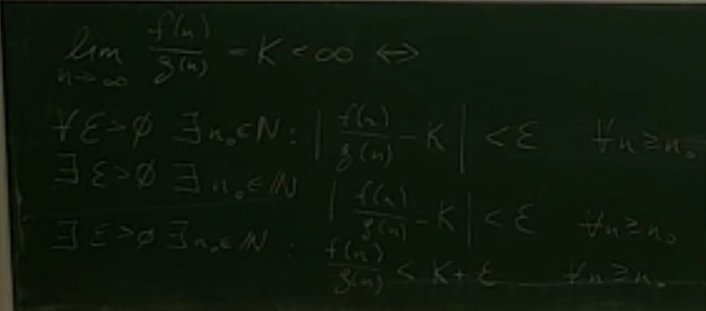 lim n→∞ f(n)/g(n) = K < ∞ ⇔
∀ε>∅ ∃n₀∈N: | f(n)/g(n) - K | < ε ∀n≥n₀
∃ε>∅ ∃n₀∈ℕ | f(n)/g(n) - K | < ε ∀n≥n₀
∃ε>∅ ∃n₀∈ℕ: f(n)/g(n) < K+ε ∀n≥n₀